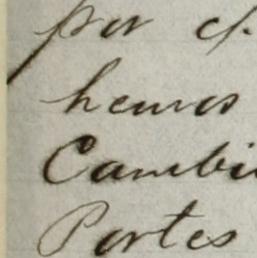 por c/.
hemos
Cambi
Portes